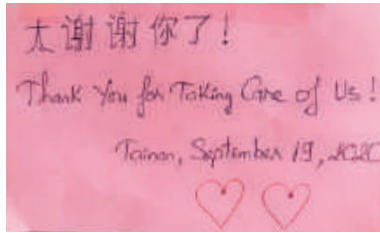 太谢谢你了!
Thank You for Taking Care of Us!
Tainan, September 19, 2020